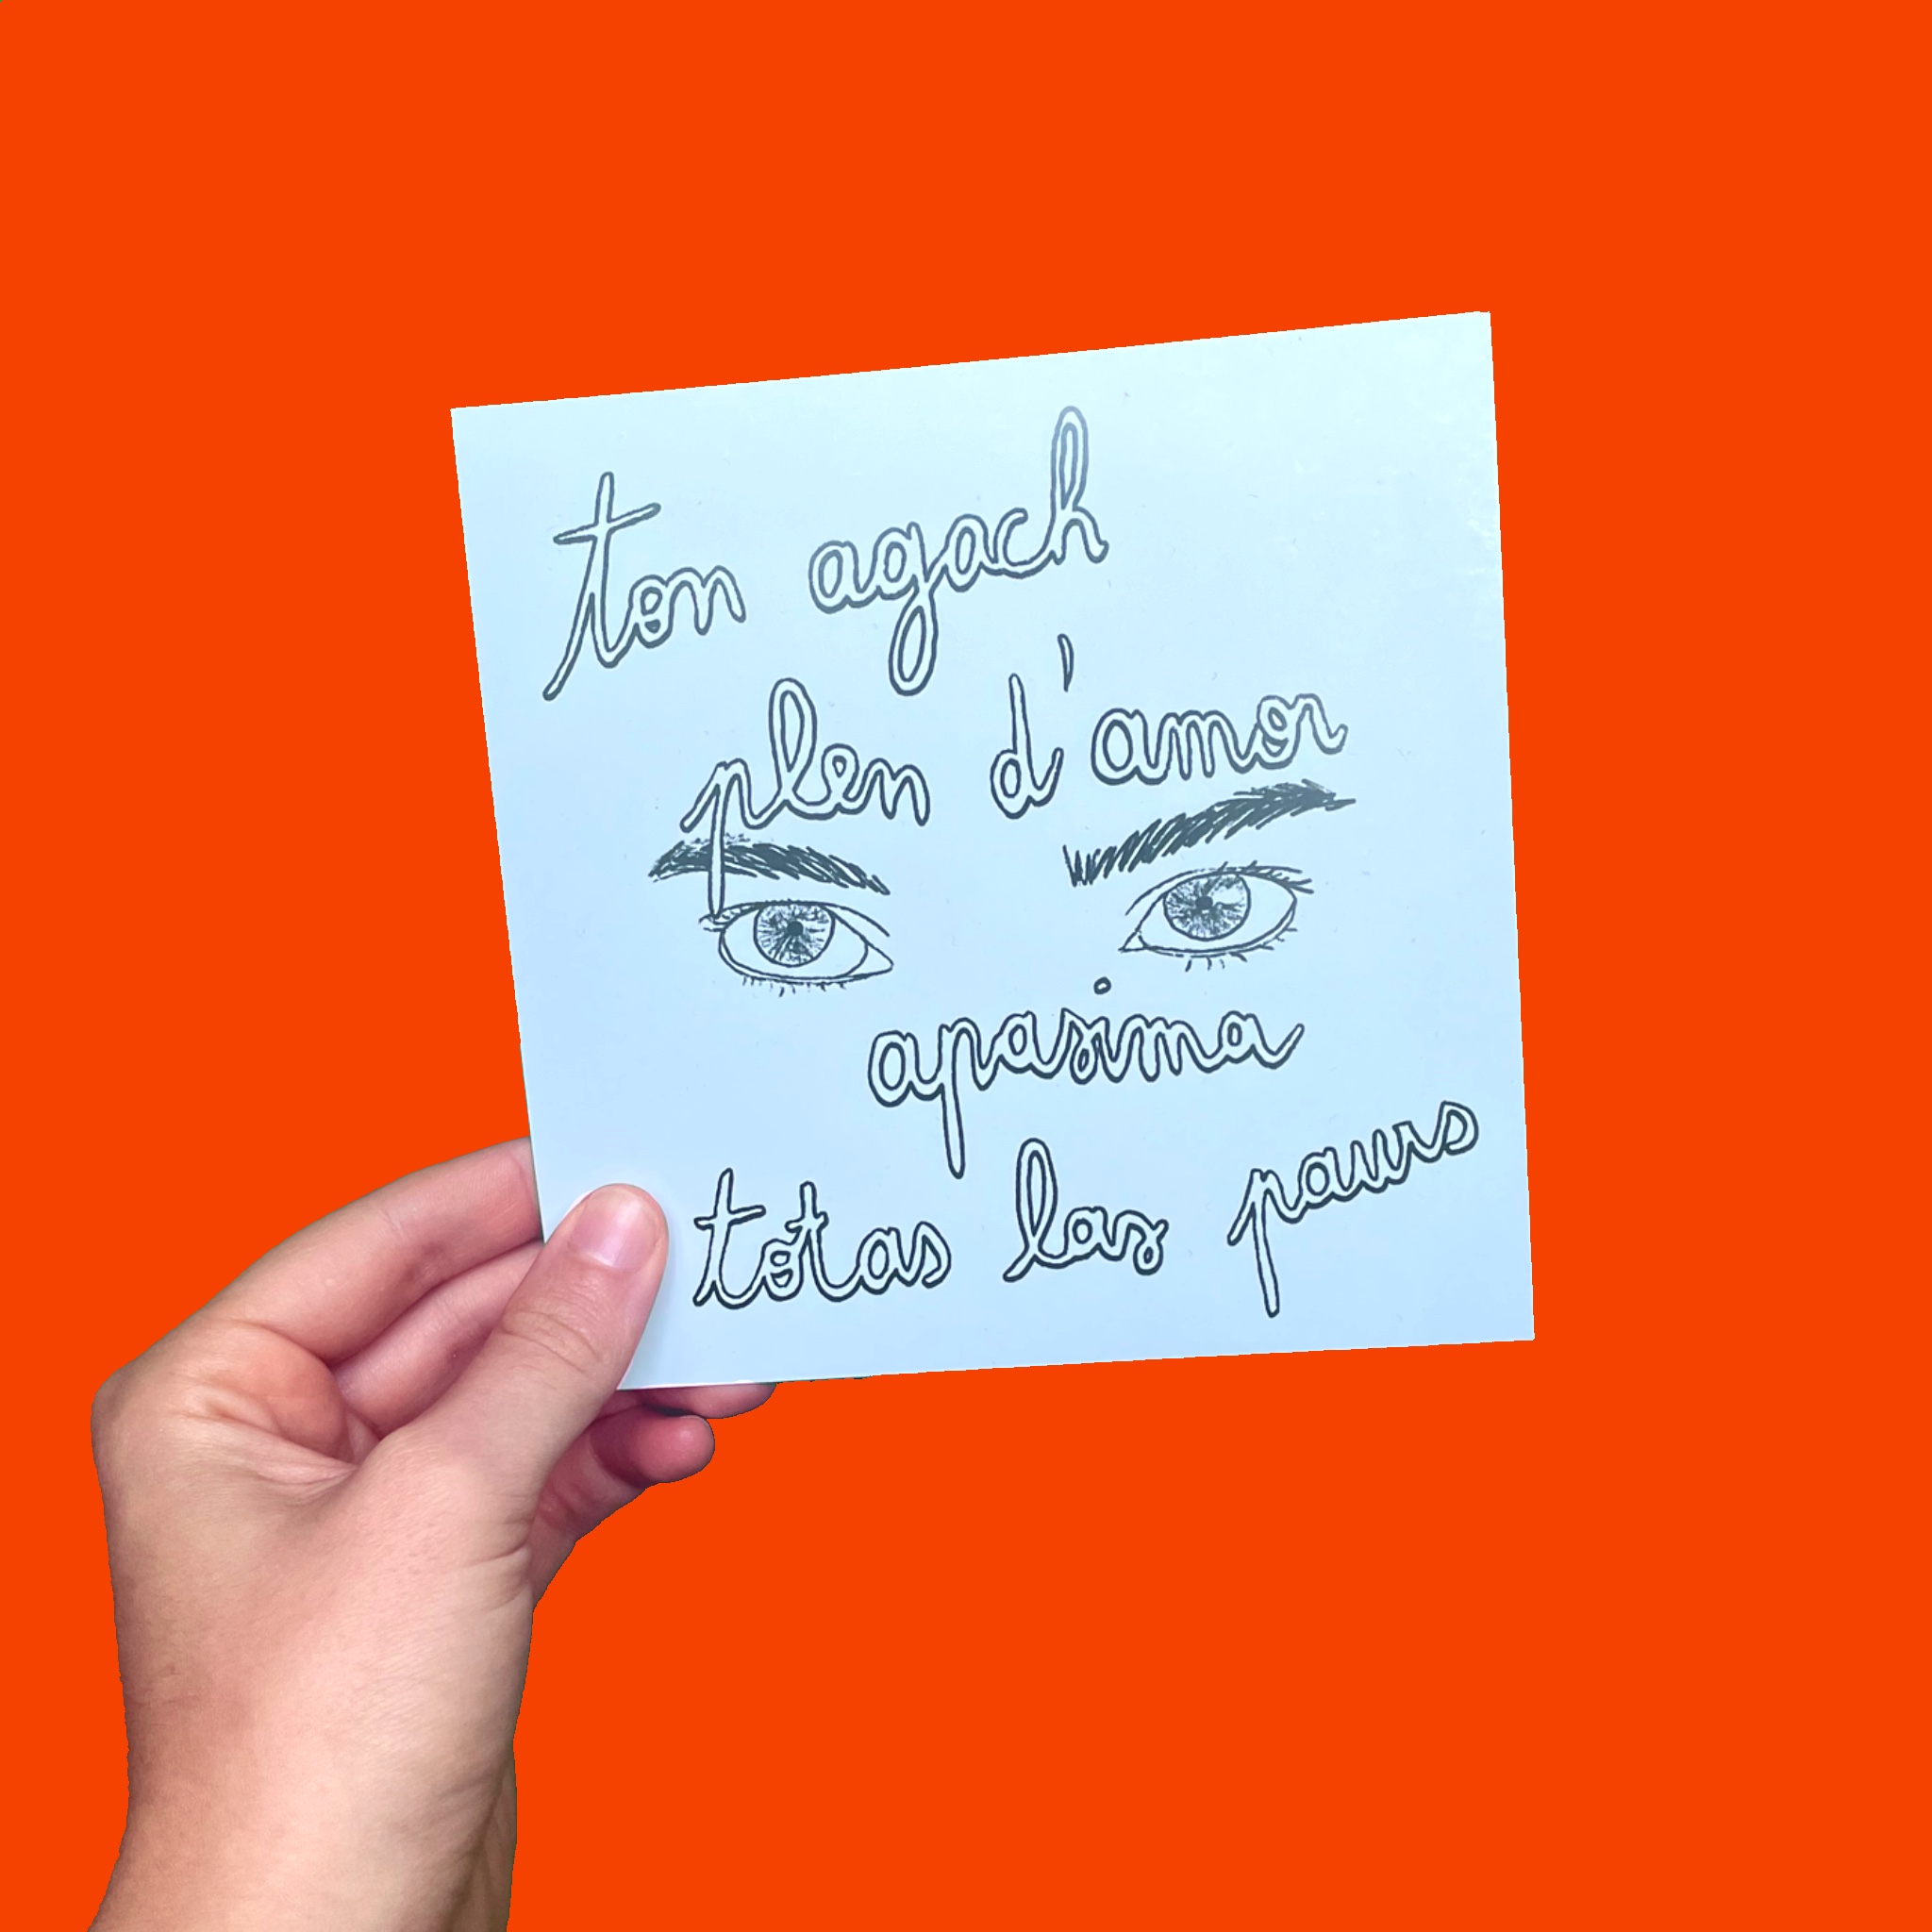 ton agach
plen d'amor
apasima
totas las paurs